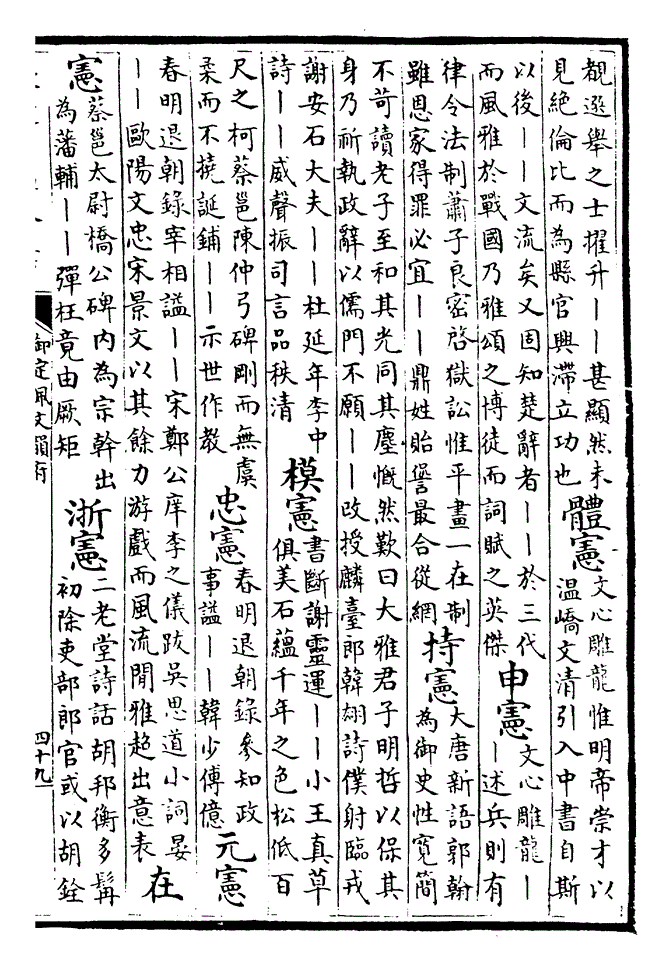 覩選舉之士擢升——甚顯然未
見絕倫比而為縣官興滯立功也
體憲
文心雕龍惟明帝崇才以
温嶠文清引入中書自斯
以後——文流矣又固知楚辭者——於三代
而風雅於戰國乃雅頌之博徒而詞賦之英傑
申憲
文心雕龍—
—述兵則有
律令法制蕭子良密啓獄訟惟平畫一在制
雖恩家得罪必宜——鼎姓貽諐最合從網
持憲
大唐新語郭翰
為御史性寬簡
不苛讀老子至和其光同其塵慨然歎曰大雅君子明哲以保其
身乃祈執政辭以儒門不願——改授麟臺郎韓翃詩僕射臨戎
謝安石大夫——杜延年李中
詩——威聲振司言品秩清
模憲
書斷謝靈運——小王真草
俱美石蘊千年之色松低百
尺之柯蔡邕陳仲弓碑剛而無虞
柔而不撓誕鋪——示世作教
忠憲
春明退朝錄參知政
事謚——韓少傅億
元憲
春明退朝錄宰相謚——宋鄭公庠李之儀跋吳思道小詞晏
——歐陽文忠宋景文以其餘力游戲而風流閒雅超出意表
在
憲
蔡邕太尉橋公碑內為宗幹出
為藩輔——彈枉竟由厥矩
浙憲
二老堂詩話胡邦衡多髯
初除吏部郎官或以胡銓
御定佩文韻府
四十九